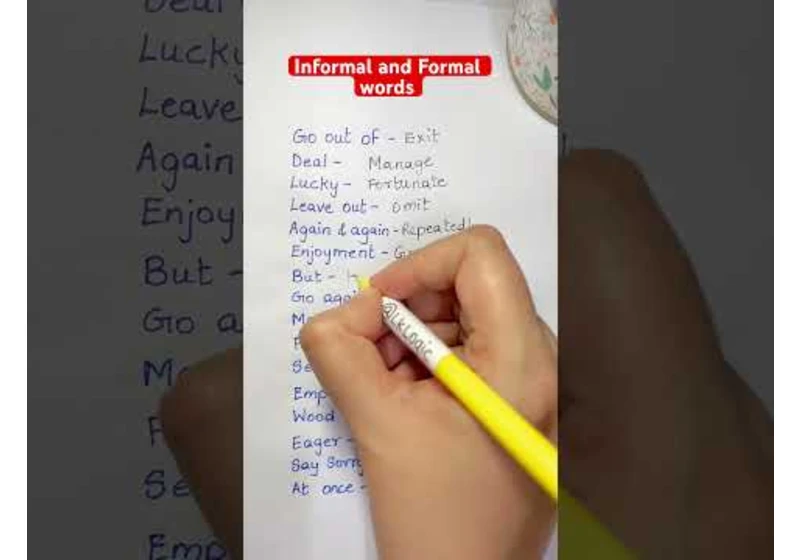 Informal and Formal
words
Go out of - Exit
Deal - Manage
Lucky - Fortunate
Leave out - Omit
Again & again - Repeatedl
Enjoyment - G
But -
Go agai
M
Se
Emp
Wood
Eager -
Say Sorry
At once -
@LKLogic